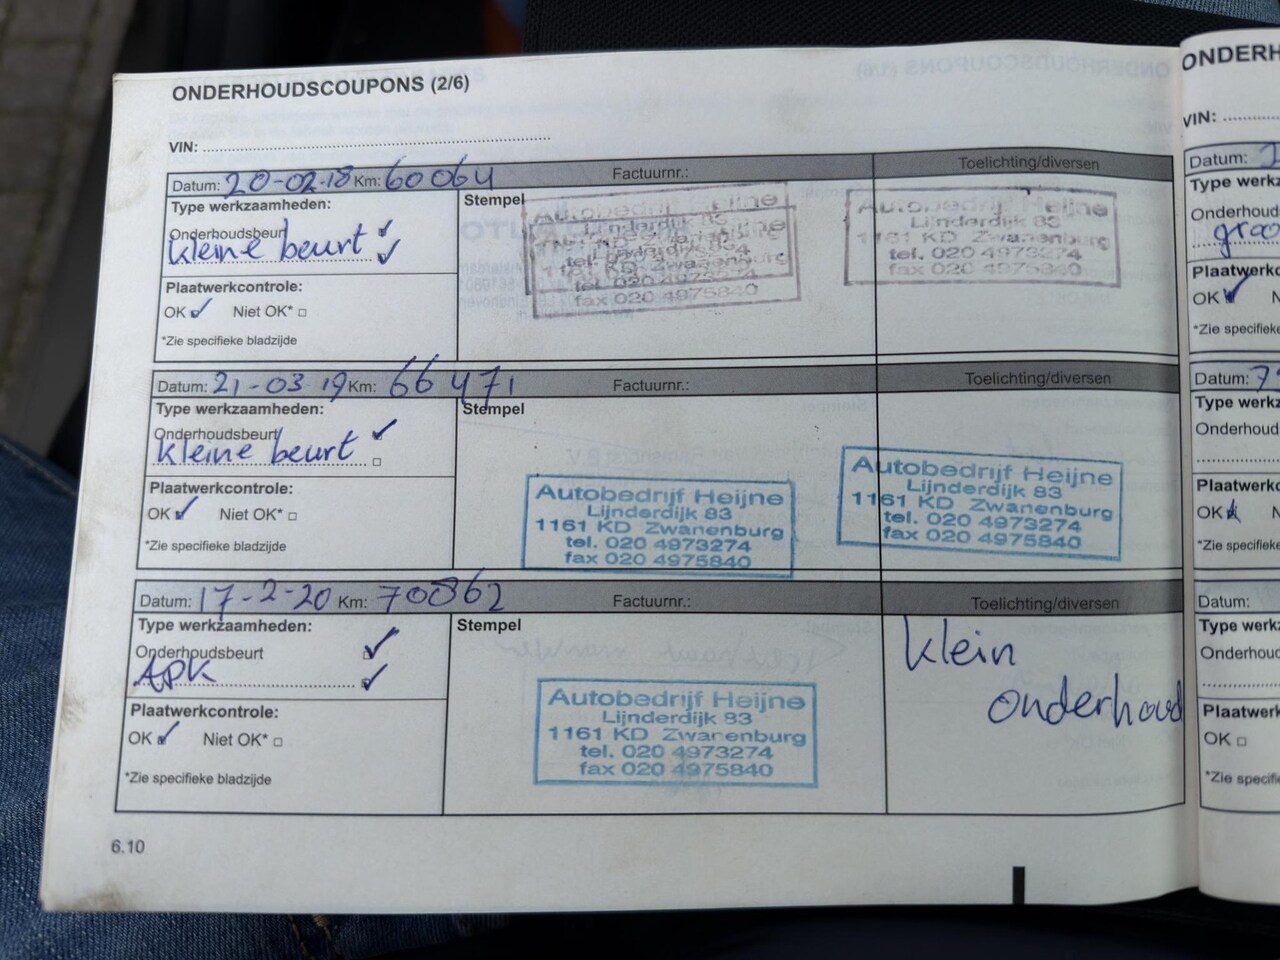 ONDERHOUDSCOUPONS (2/6)
VIN:
Datum: 20-02-18 Km: 60064 Factuurnr.: Toelichting/diversen
Type werkzaamheden:
Stempel
Onderhoudsbeurt
kleine beurt
Plaatwerkcontrole:
OK Niet OK*
*Zie specifieke bladzijde
Autobedrijf Heijne
Lijnderdijk 83
1161 KD Zwanenburg
tel. 020 4973274
fax 020 4975840
Autobedrijf Heijne
Lijnderdijk 83
1161 KD Zwanenburg
tel. 020 4973274
fax 020 4975840
Datum: 21-03-19 Km: 66471 Factuurnr.: Toelichting/diversen
Type werkzaamheden:
Stempel
Onderhoudsbeurt
kleine beurt
Plaatwerkcontrole:
OK Niet OK*
*Zie specifieke bladzijde
Autobedrijf Heijne
Lijnderdijk 83
1161 KD Zwanenburg
tel. 020 4973274
fax 020 4975840
Autobedrijf Heijne
Lijnderdijk 83
1161 KD Zwanenburg
tel. 020 4973274
fax 020 4975840
Datum: 17-2-20 Km: 70862 Factuurnr.: Toelichting/diversen
Type werkzaamheden:
Stempel
Onderhoudsbeurt
APK
Plaatwerkcontrole:
OK Niet OK*
*Zie specifieke bladzijde
Autobedrijf Heijne
Lijnderdijk 83
1161 KD Zwanenburg
tel. 020 4973274
fax 020 4975840
klein
onderhoud
6.10
ONDERH
VIN:
Datum:
Type werkz
Onderhoud
groo
Plaatwerkc
OK
*Zie specifieke
Datum:
Type werkz
Onderhou
Plaatwerkc
OK
*Zie specifieke
Datum:
Type werkz
Onderhou
Plaatwerk
OK
*Zie specifi